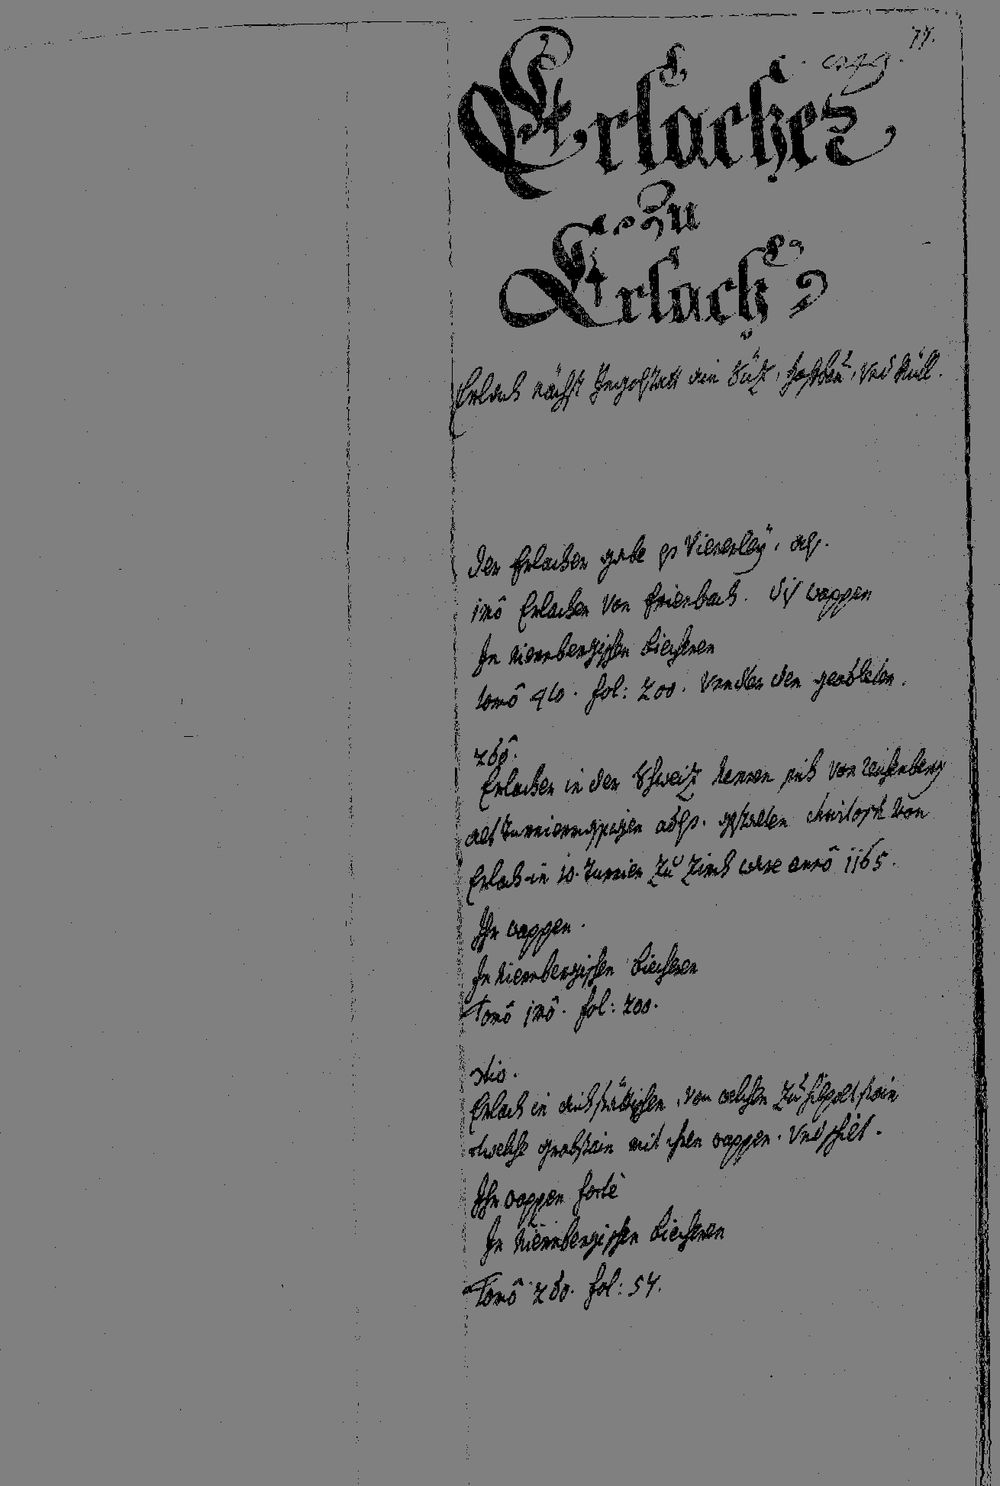 77.
Erlacher
Zu
Erlach
Erlach nächst Ingolstatt ein Sütz, Hofbau, Und Müll.
Der Erlacher gabe es Viererley, als.
imo Erlacher Von Erienbach. diß wappen
In Niernbergischen Biecheren
tomo 4to. fol: 200. Vnder den geadleten.
2do.
Erlacher in der Schweitz Nennen sich Von Reichenberg
alß Turniersgnosen adls. gestalten Christoph Von
Erlach in 10. Turnier Zu Zirch ware anno 1165.
Ihr wappen.
In Niernbergischen Biecheren
Tomo imo. fol: 200.
3tio.
Erlach in Aichstättischen, Von welchen Zu Hilpoltstain
etwelche grabstain mit ihren wappen. Und schilt.
Ihr wappen
In Niernbergischen Biecheren
Tomo 2do. fol: 54.